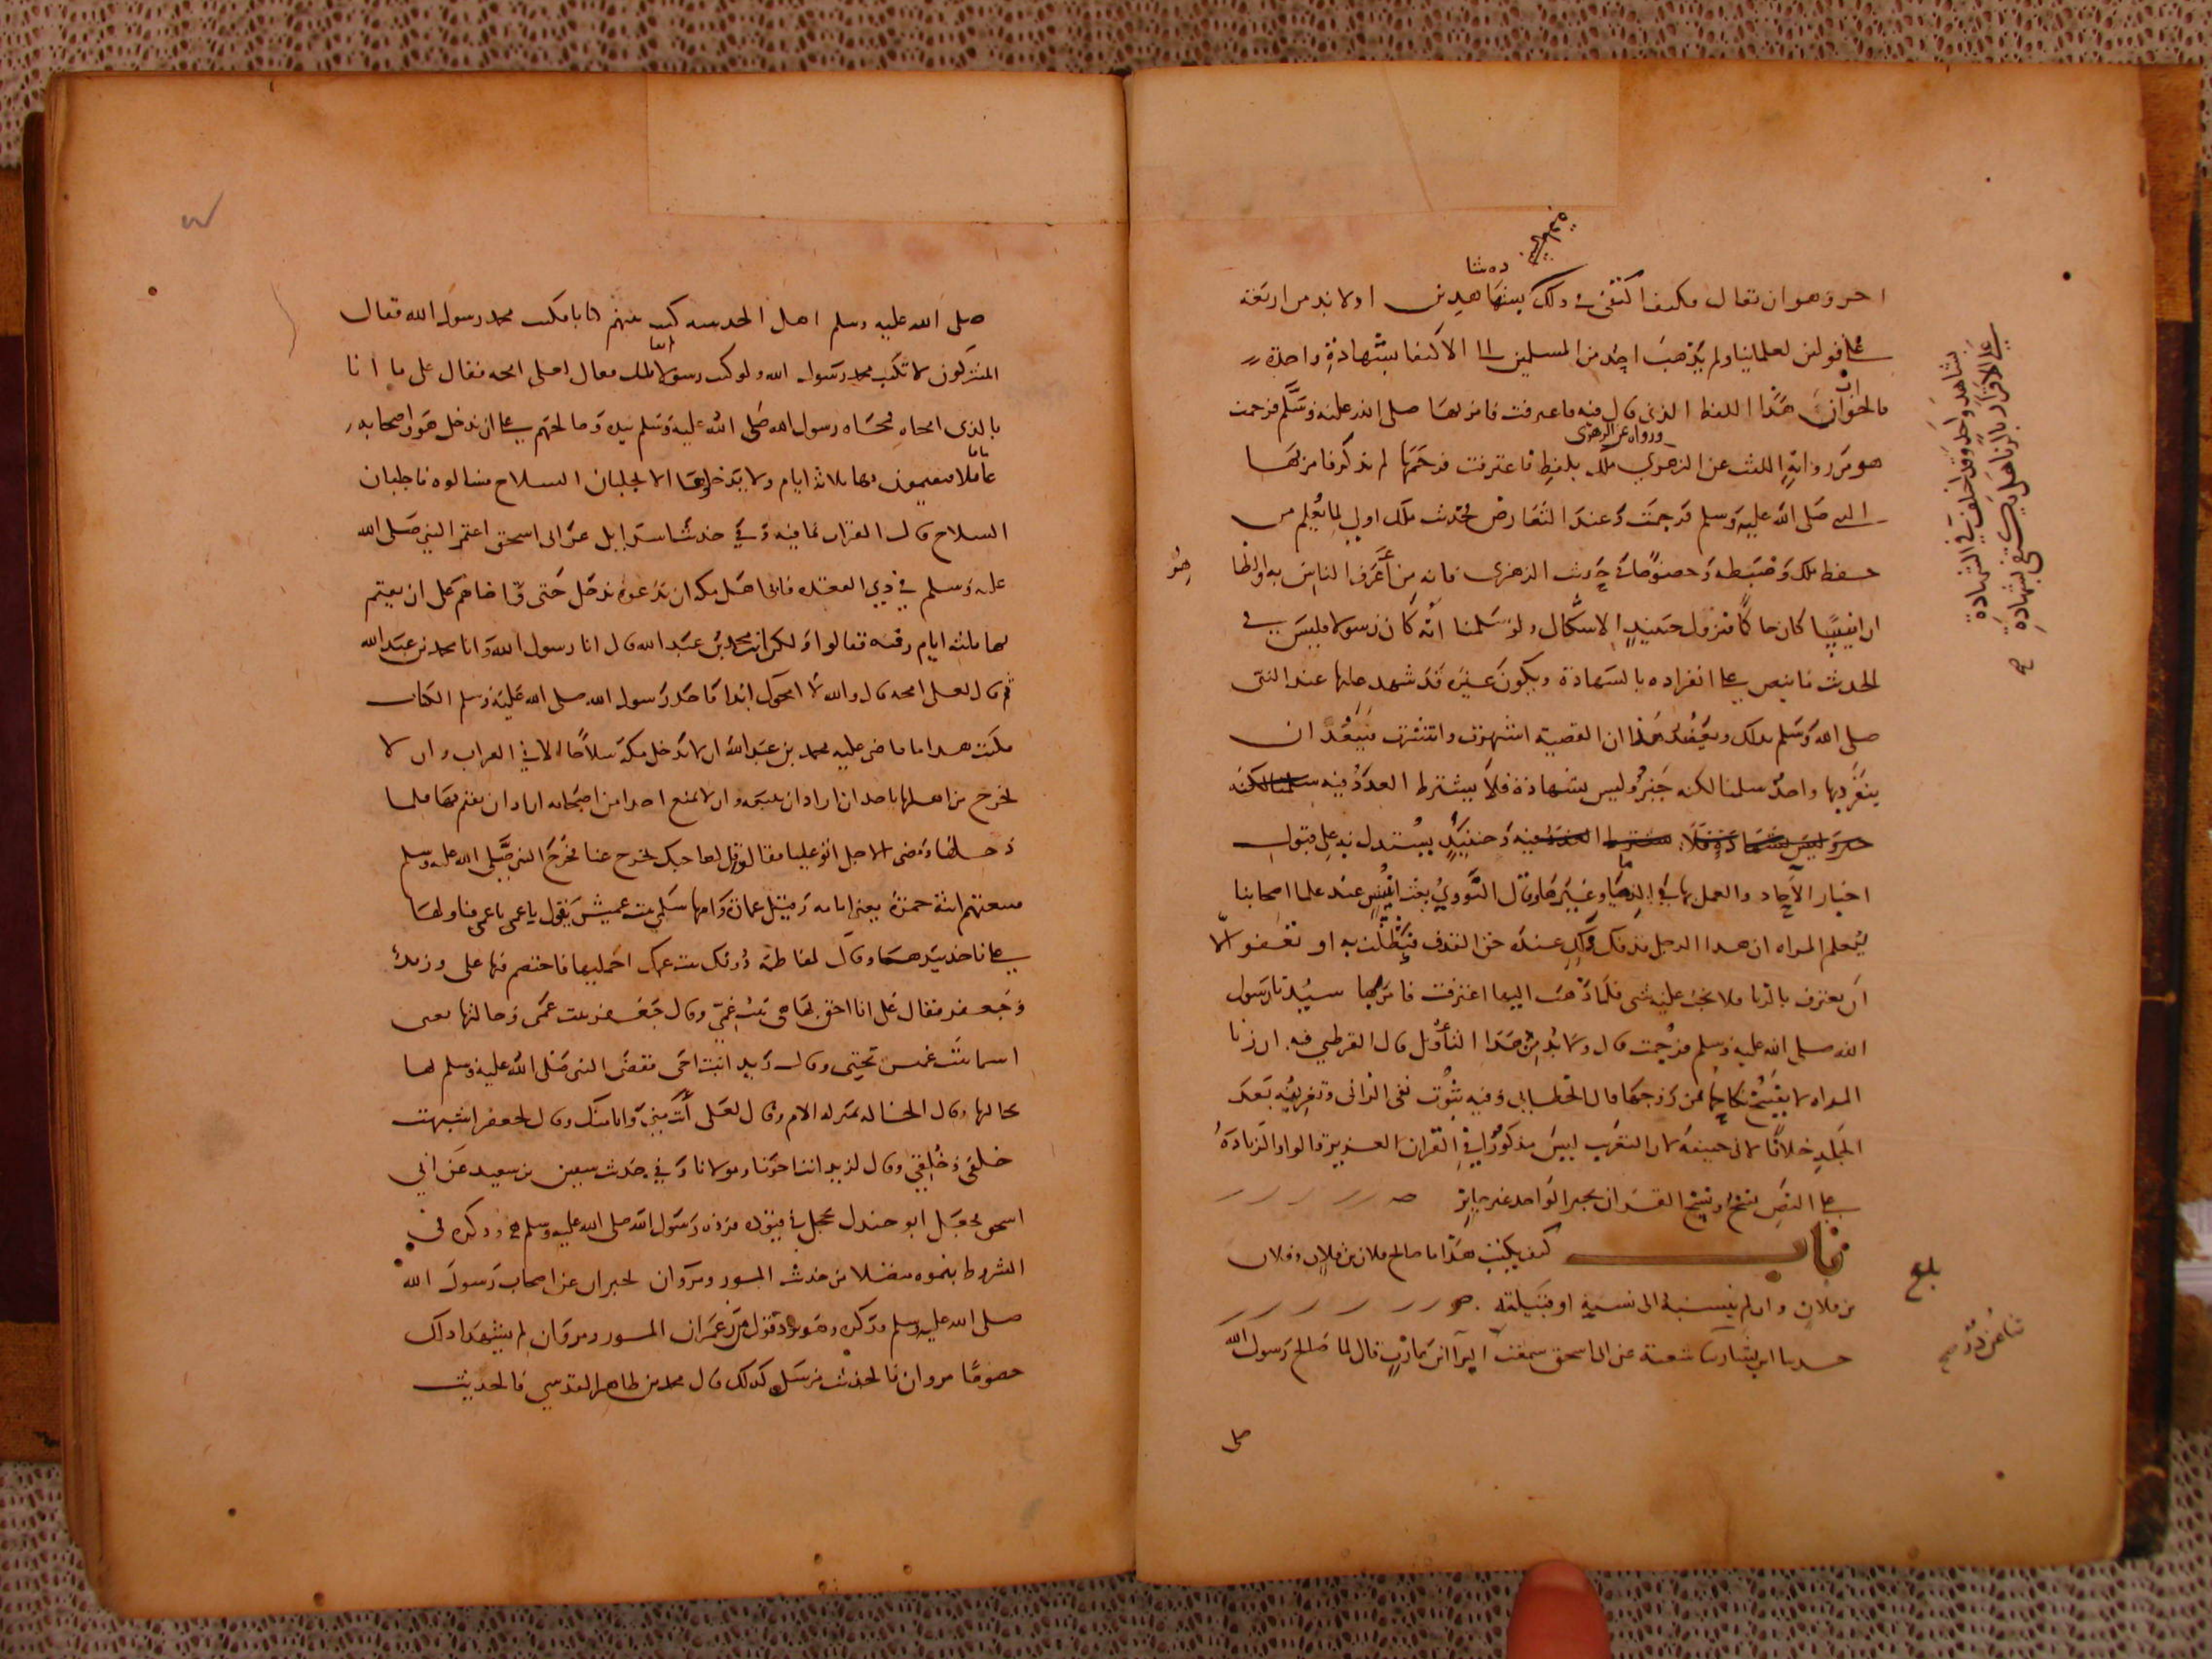 احر وهو ان يقال فكيف اكتفى في ذلك بشاهدين او لا بد من اربعة
على قولين لعلمائنا ولم يذهب احد من المسلمين الى الاكتفا بشهادة واحدة
فالجواب ان هذا اللفظ الذي قال فيه فاعترفت فامر بها صلى الله عليه وسلم فرجمت
هو من رواية الليث عن الزهري ورواه عن الزهري ملك بلفظ فاعترفت فرجمها لم يذكر فامر بها
النبي صلى الله عليه وسلم فرجمت وعند التعارض فحديث ملك اولى لما يعلم من
حفظ ملك وضبطه وخصوصا في حديث الزهري فانه من اعرف الناس به والظا
هر
ان انيسا كان حاكما فيزول حينئذ الاشكال ولو سلمنا انه كان رسولا فليس في
الحديث ما ينص على انفراده بالشهادة ويكون غيره قد شهد عليها عند النبي
صلى الله وسلم بذلك ويعضد هذا ان القصية اشتهرت وانتشرت فيبعد ان
ينفرد بها واحد سلمنا لكنه خبر وليس بشهادة فلا يشترط العدد فيه سلمنا لكنه
خبر وليس بشهادة فلا يشترط العدد فيه وحينئذ يستدل به على قبول
اخبار الآحاد والعمل بها في الدما وغيرها وقال النووي بعث انيس عند علما اصحابنا
ليعلم المراه ان هدا الرجل قذفك ولك عنده حق القذف فتطلب به او تعفو الا
ان يعترف بالزنا فلا يجب عليه شي فلما ذهب اليها اعترفت فامر بها سيدنا رسول
الله صلى الله عليه وسلم فرجمت قال ولا بد من هذا التاويل قال القرطبي فيه ان زنا
المراه لا يفسخ نكاحها من زوجها قال الخطابي وفيه ثبوت نفي الزاني وتغريبه بعد
الجلد خلافا لابي حنيفة لان التغريب ليس مذكورا في القران العزيز قالوا والزيادة
على النص نسخ ونسخ القران بخبر الواحد غير جايز
باب كيف يكتب هذا ما صالح فلان بن فلان وفلان
بن فلان وان لم ينسبه الى نسبه او قبيلته
حدثنا ابن بشار شعبة عن ابى اسحق سمعت البرآ ابن عازب قال لما صالح رسول الله
على الاقرار بالزنا هل يكتفي بشهادة
بشاهد واحد وقد اختلف في الشهادة
بلغ
ثنا غندر صح
صلى
صلى الله عليه وسلم اهل الحديبيه كتب بينهم كتابا فكتب محمد رسول الله فقال
المشركون لا تكتب محمد رسول الله ولو كنت رسولا لم نقاتلك فقال لعلي امحه فقال علي ما انا
بالذي امحاه فمحاه رسول الله صلى الله عليه وسلم بيده وصالحهم على ان يدخل هو واصحابه
عاما قابلا فيقيمون بها ثلاثة ايام ولا يدخلوها الا بجلبان السلاح فسالوه ما جلبان
السلاح قال القراب بما فيه وفي حديث اسرائيل عن ابى اسحق اعتمر النبي صلى الله
عليه وسلم في ذي القعده فابى اهل مكه ان يدعوه يدخل حتى قاضاهم على ان يقيم
بها ثلثه ايام وفيه فقالوا ولكن انت محمد بن عبد الله قال انا رسول الله وانا محمد بن عبد الله
ثم قال لعلى امحه قال والله لا امحوك ابدا فاخذ رسول الله صلى الله عليه وسلم الكتاب
فكتب هدا ما قاضى عليه محمد بن عبد الله ان لا يدخل مكة سلاحا الا في القراب وان لا
يخرج من اهلها باحد ان اراد ان يتبعه وان لا يمنع احدا من اصحابه اراد ان يقيم بها فلما
دخلها ومضى الاجل اتوا عليا فقالوا قل لصاحبك يخرج عنا فخرج النبي صلى الله عليه وسلم
فتبعتهم ابنة حمزة يعني امامه وقيل عمارة وامها سلمى بنت عميس تقول يا عمي يا عمي فتناولها
على فاخذ بيدها وقال لفاطمة دونك بنت عمك احمليها فاختصم فيها على وزيد
وجعفر فقال على انا احق بها وهى بنت عمي وقال جعفر بنت عمى وخالتها يعنى
اسما بنت عميس تحتي وقال زيد ابنت اخى فقضى النبي صلى الله عليه وسلم لها
بخالتها وقال الخاله بمنزلة الام وقال لعلى انت مني وانا منك وقال لجعفر اشبهت
خلقى وخلقي وقال لزيد انت اخونا ومولانا وفي حديث سفين بن سعيد عن ابي
اسحق فجعل ابو جندل يحجل في قيوده فرده رسول الله صلى الله عليه وسلم وذكره في
الشروط بنحوه مفصلا من حديث المسور ومروان يخبران عن اصحاب رسول الله
صلى الله عليه وسلم فذكره وهو يرد قول من زعم ان المسور ومروان لم يشهدا ذاك
خصوصا مروان فالحديث مرسل كذلك قال محمد بن طاهر المقدسي فالحديث